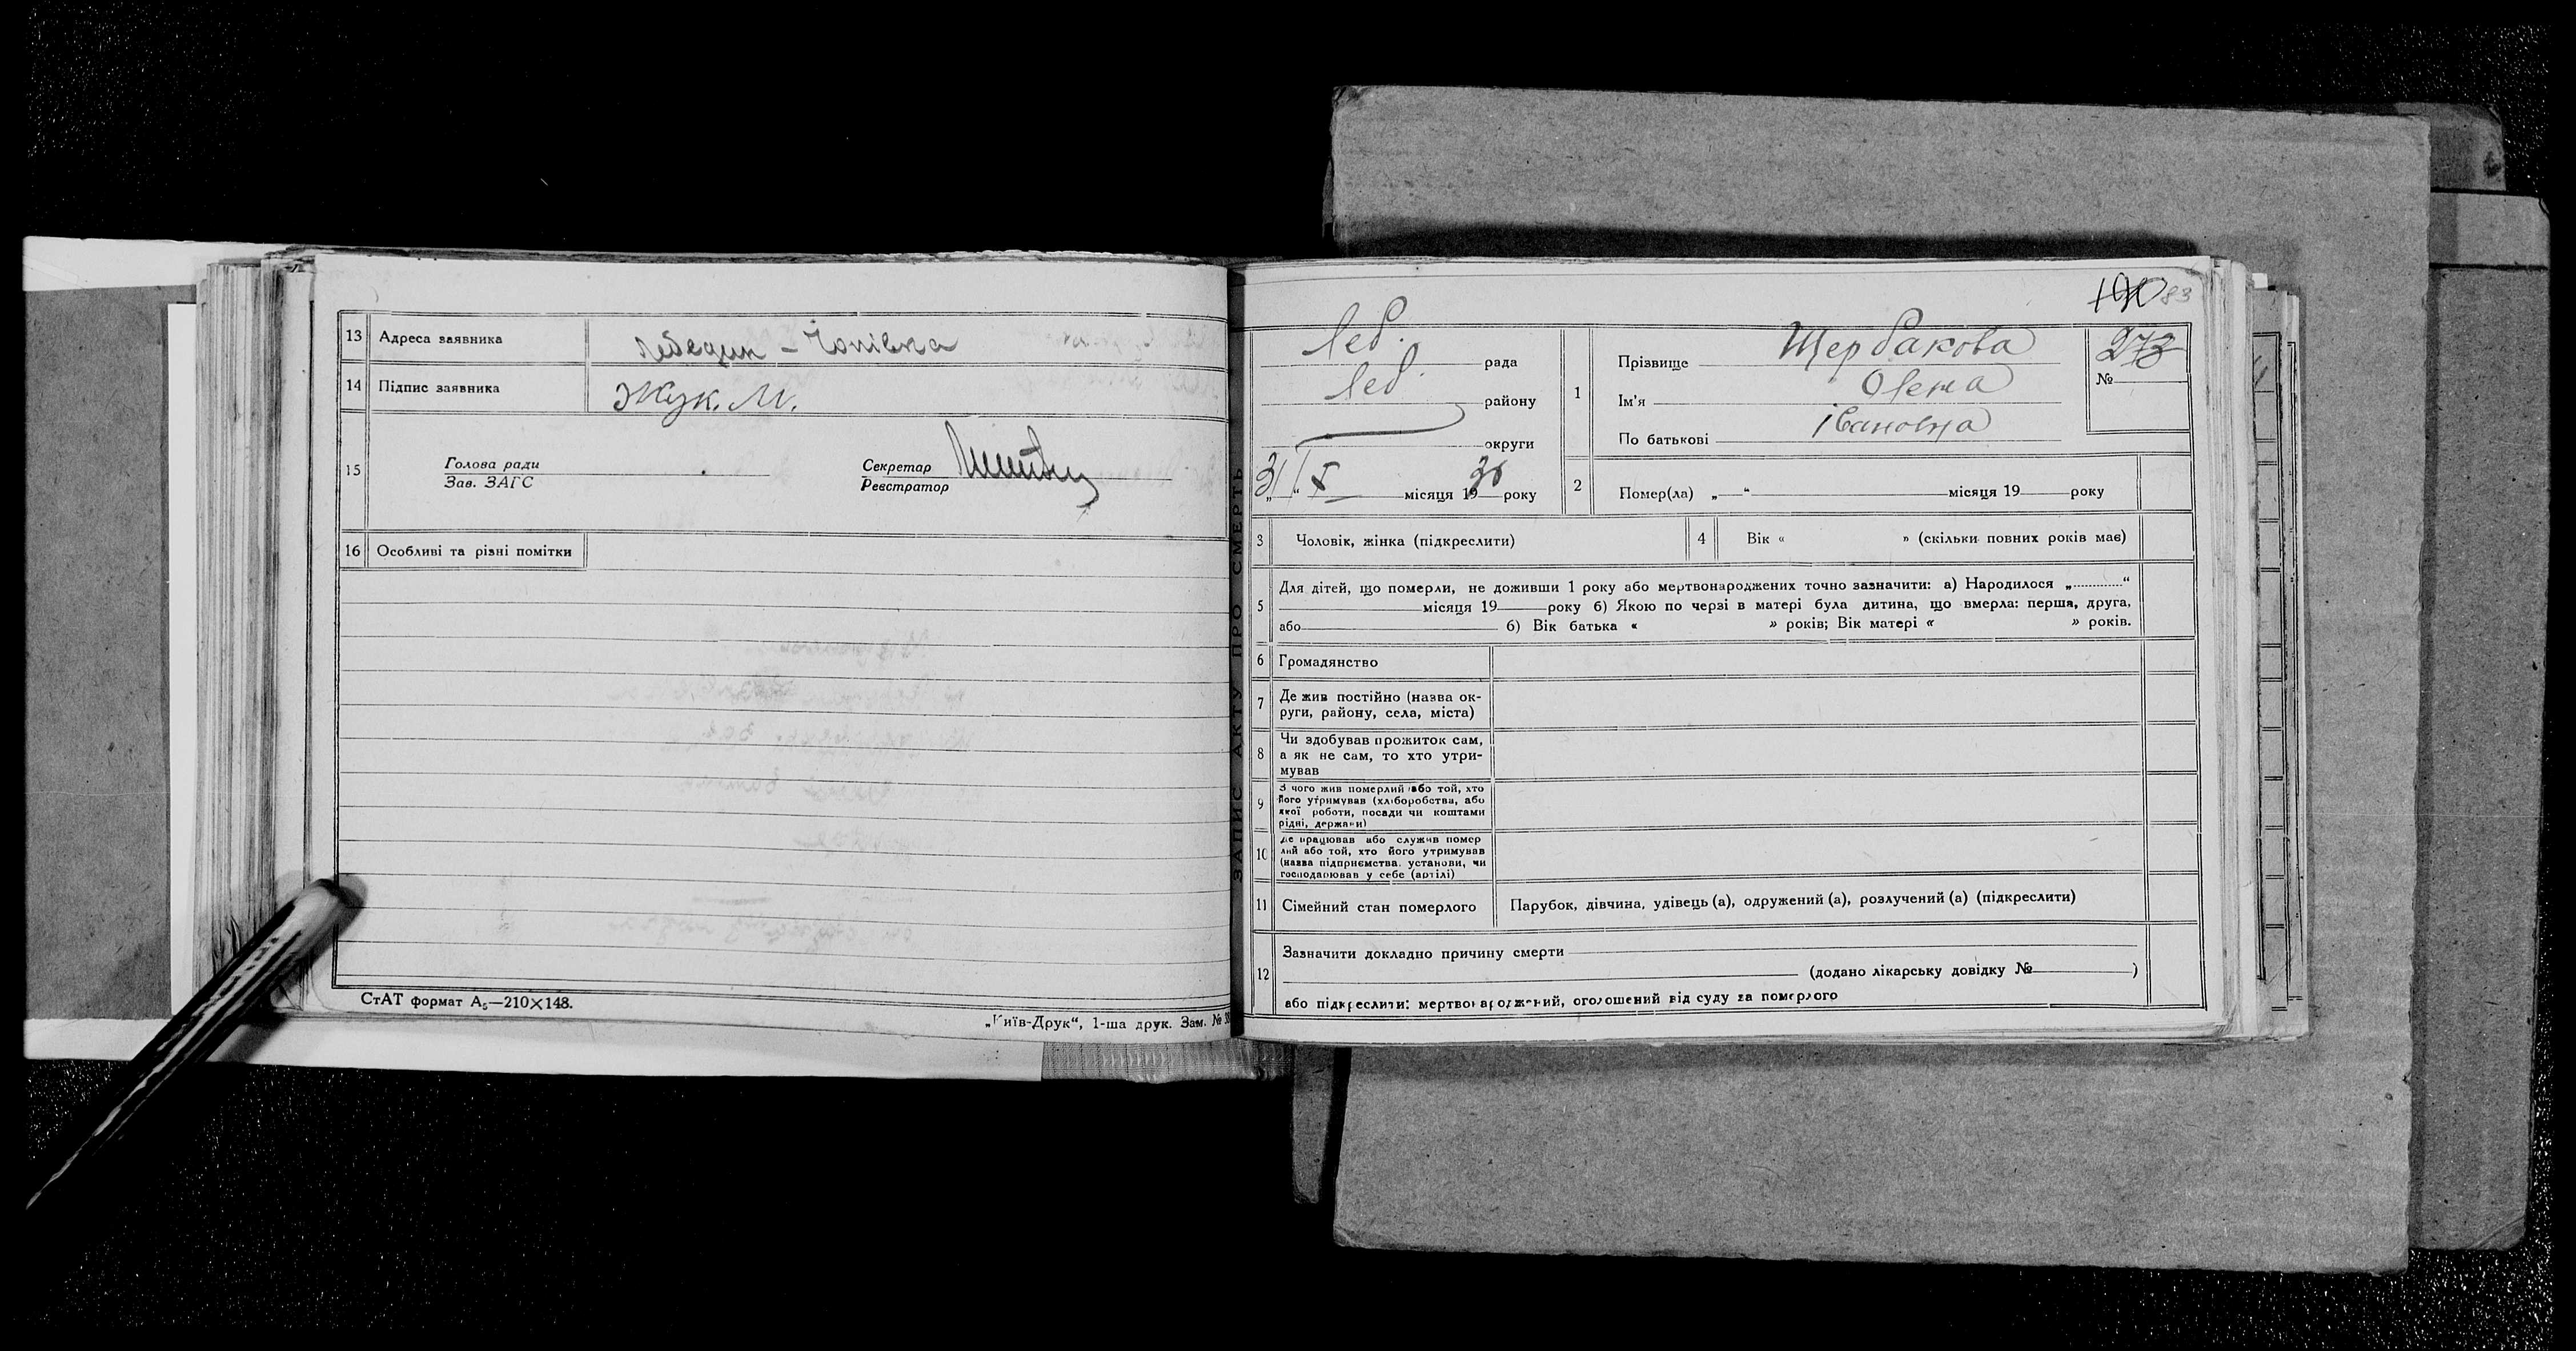 13 Адреса заявника Лебедин – Чопівка
14 Підпис заявника Жук. М.
15 Голова ради
Зав. ЗАГС
Секретар
Реєстратор
16 Особливі та різні помітки
СтАТ формат А₅—210×148.
„Київ-Друк“, 1-ша друк. Зам. №
ЗАПИС АКТУ ПРО СМЕРТЬ
190 83
Леб. рада
Леб. району
округи
„31“ X місяця 1930 року
1 Прізвище Щербакова
Ім'я Олена
По батькові Івановна
273
№
2 Помер(ла) „ “ місяця 19 року
3 Чоловік, жінка (підкреслити)
4 Вік « » (скільки повних років має)
5 Для дітей, що померли, не доживши 1 року або мертвонароджених точно зазначити: а) Народилося „ “
місяця 19 року б) Якою по черзі в матері була дитина, що вмерла: перша, друга,
або б) Вік батька « » років; Вік матері « » років.
6 Громадянство
7 Де жив постійно (назва ок-
руги, району, села, міста)
8 Чи здобував прожиток сам,
а як не сам, то хто утри-
мував
9 З чого жив померлий або той, хто
його утримував (хліборобства, або
якої роботи, посади чи коштами
рідні, держави)
10 Де працював або служив помер
лий або той, хто його утримував
(назва підприємства, установи, чи
господарював у себе (артілі)
11 Сімейний стан померлого Парубок, дівчина, удівець (а), одружений (а), розлучений (а) (підкреслити)
12 Зазначити докладно причину смерти
(додано лікарську довідку № )
або підкреслити: мертвонароджений, оголошений від суду за померлого